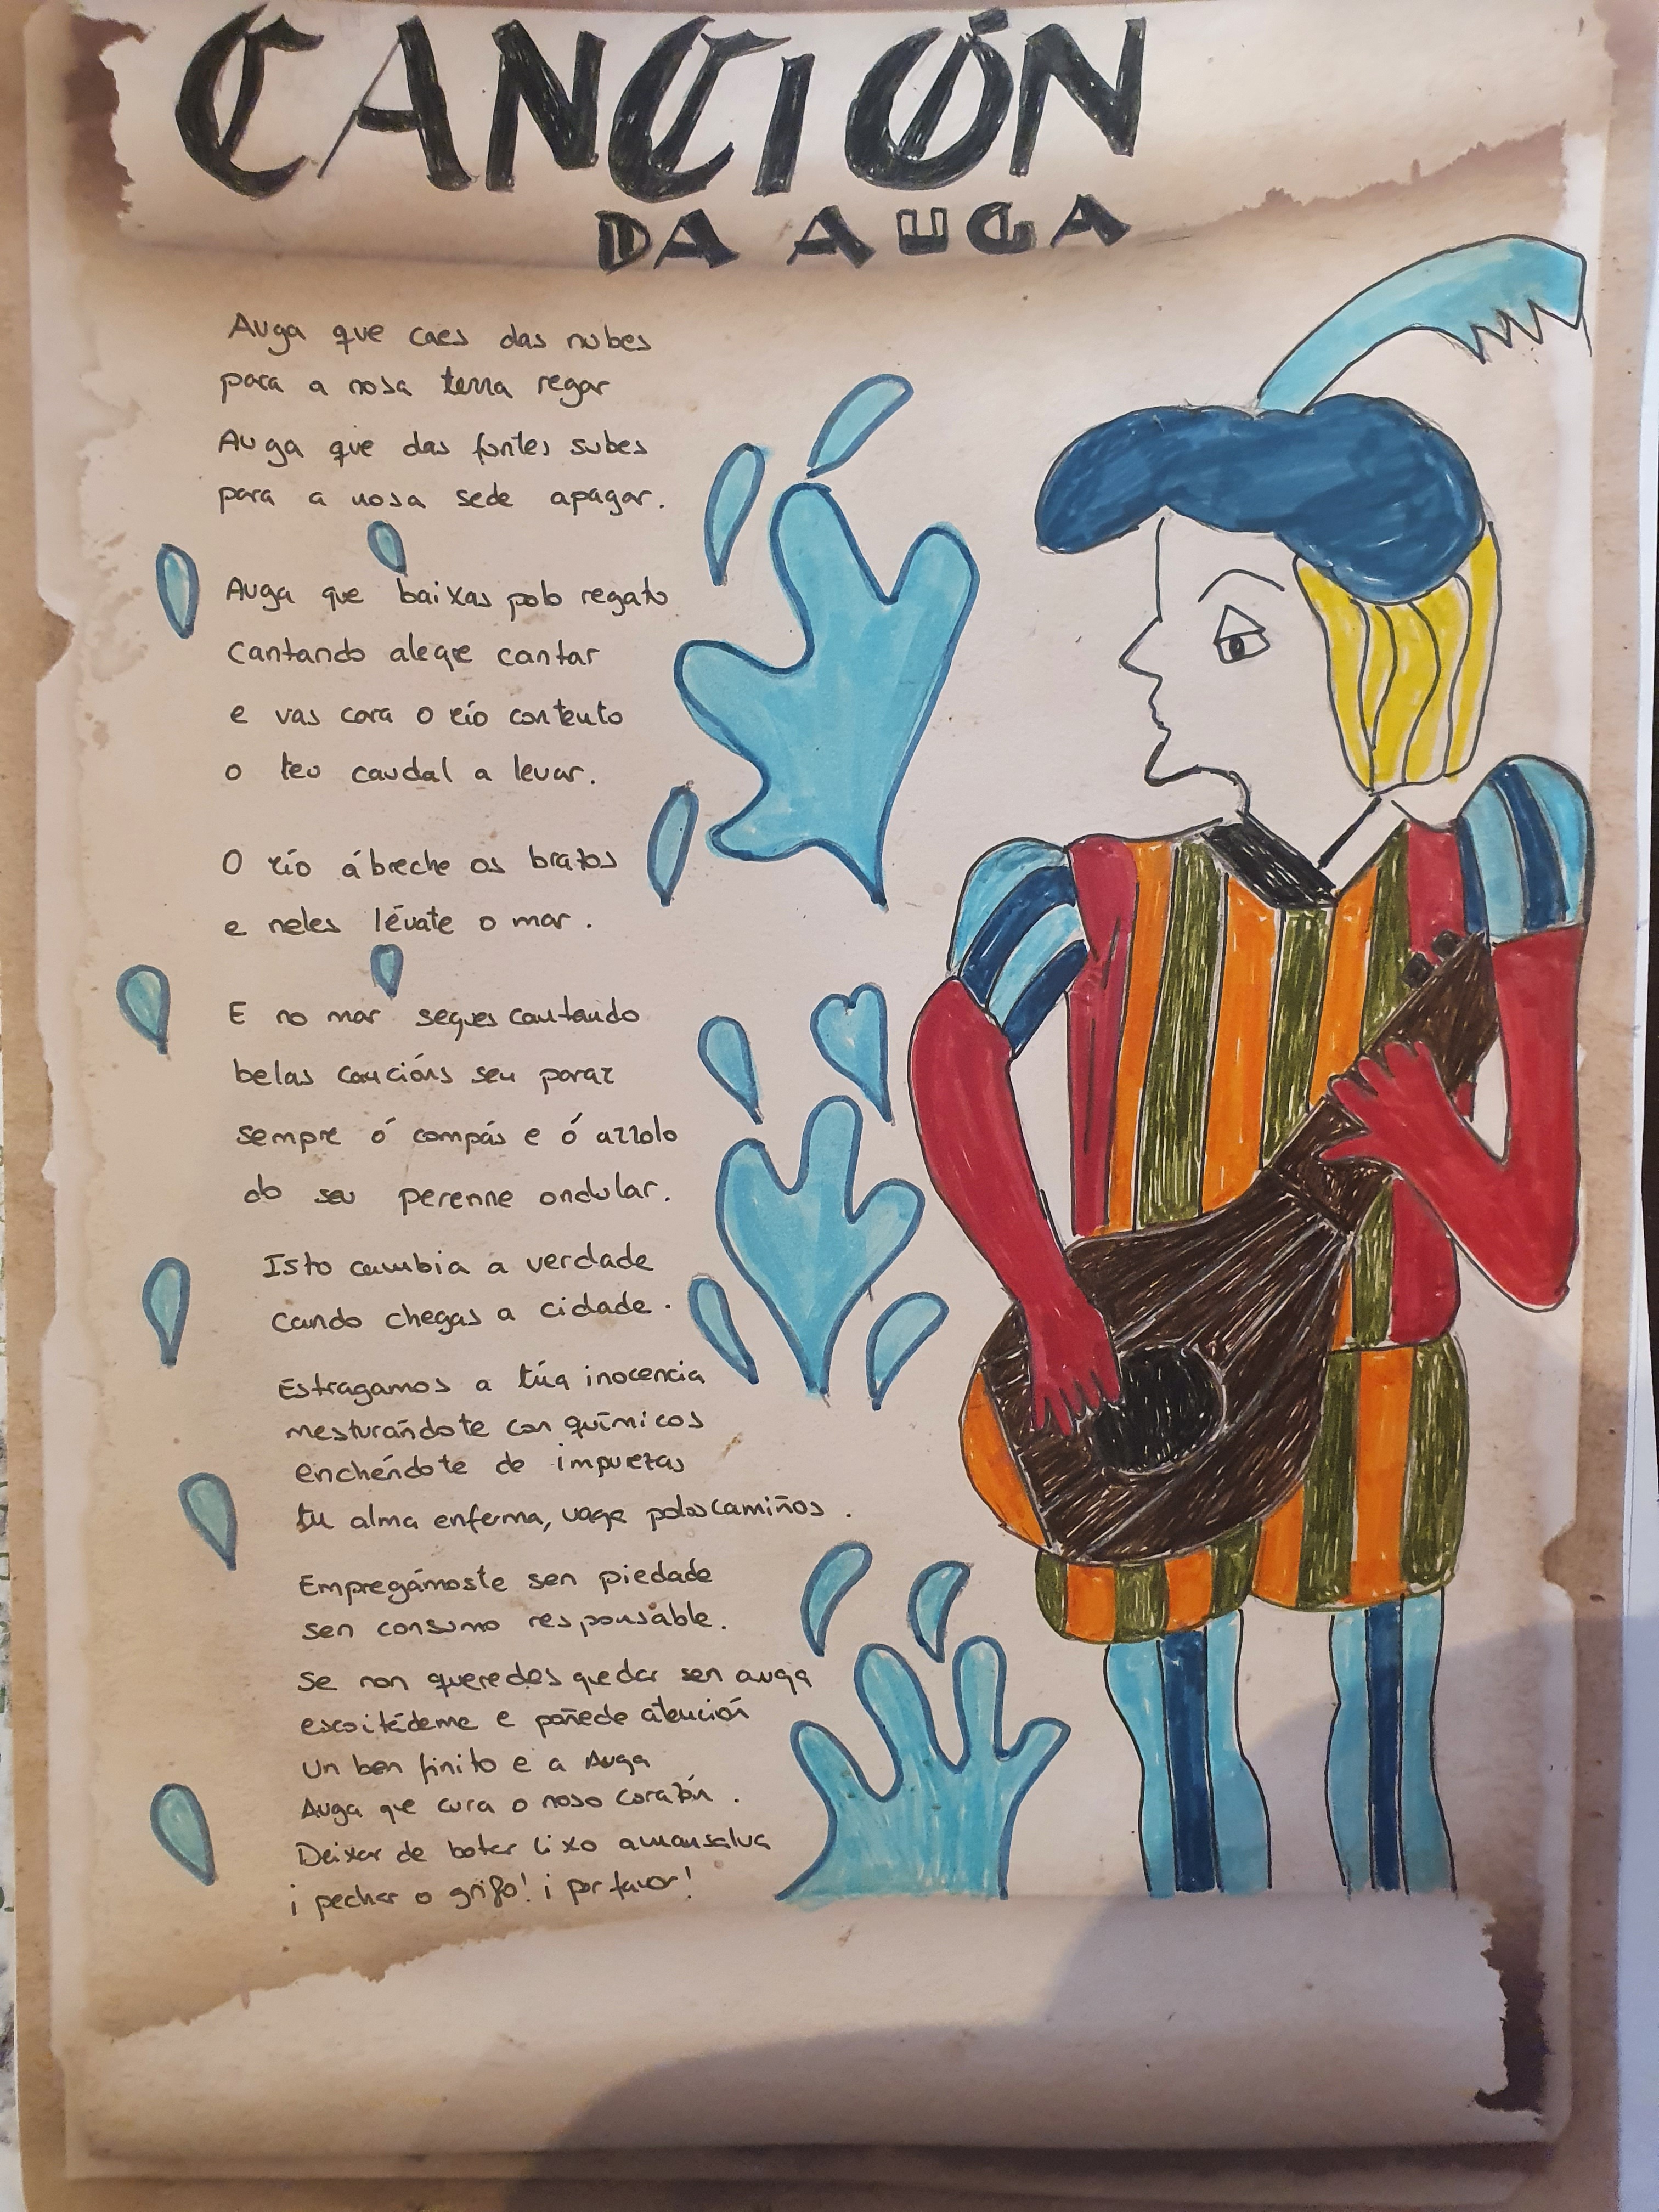 CANCIÓN
DA AUGA
Auga que caes das nubes
para a nosa terra regar
Auga que das fontes subes
para a nosa sede apagar.
Auga que baixas polo regato
cantando alegre cantar
e vas cara o río contento
o teu caudal a levar.
O río ábreche os brazos
e neles lévate o mar.
E no mar segues cantando
belas cancións sen parar
sempre ó compás e ó arrolo
do seu perenne ondular.
Isto cambia a verdade
cando chegas a cidade.
Estragamos a túa inocencia
mesturándote con químicos
enchéndote de impurezas
tu alma enferma, vaga polos camiños.
Empregámoste sen piedade
sen consumo responsable.
Se non queredes quedar sen auga
escoitédeme e poñede atención
Un ben finito e a Auga
Auga que cura o noso corazón.
Deixar de botar lixo a mansalva
¡pechar o grifo! ¡por favor!